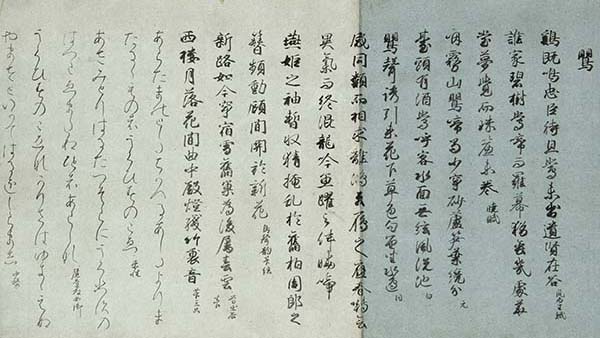 鶯
鶏既鳴忠臣待旦鶯未出遺賢在谷 鳳為王賦
誰家碧樹鶯啼而羅幕猶垂幾處華
堂夢覺而珠簾未巻 暁賦
咽霧山鶯啼尚少穿砂蘆笋葉纔分 元
臺頭有酒鶯呼客水面無塵風洗池 白
鶯聲誘引来花下草色勾留坐水邊 白
感同類於相求離鴻去鴈之應春囀會
異氣而終混龍吟魚躍之伴暁啼
燕姫之袖暫収猜撩乱於舊拍周郎之
簪頻動顧間関於新花
新路如今穿宿雪舊巣為後属春雲
西楼月落花間曲中殿燈残竹裏音 菅三品
あらたまのとしたちかへるあしたより
またるゝものはうくひすのこゑ 素性
あさみとりはるたつそらにうくひすの
はつこゑまたぬひとはあらしな
うくひすのこゑなかりせはゆきゝえぬ
やまさといかてはるをしらまし 中務